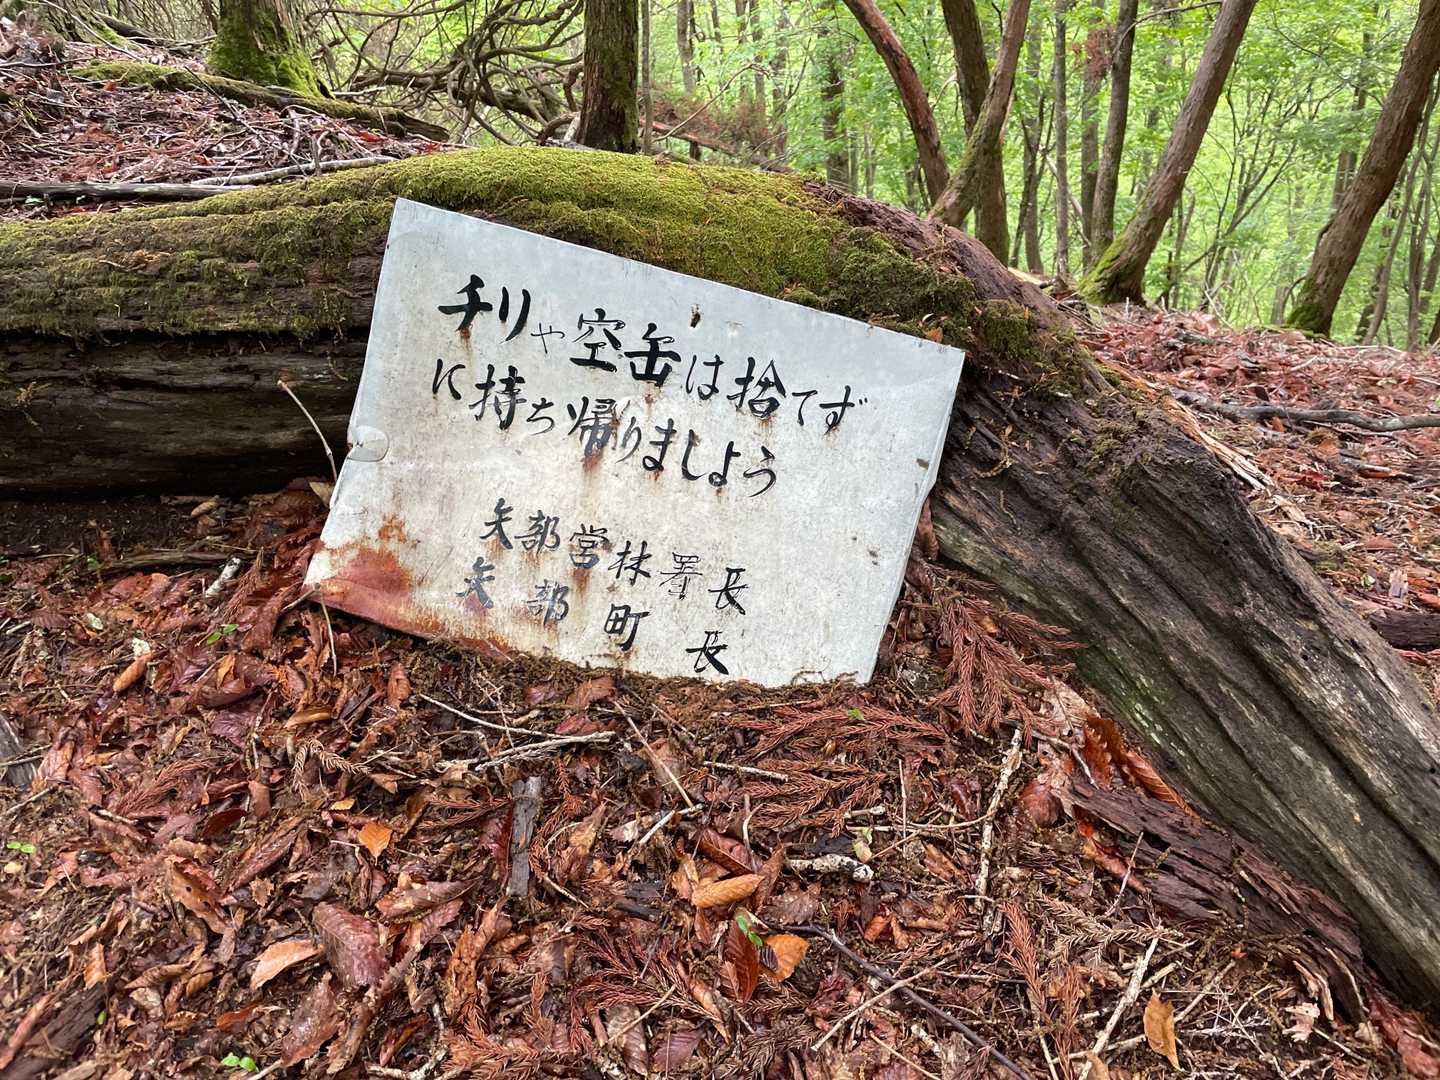 チリや空缶は捨てず
に持ち帰りましょう
矢部営林署長
矢部町長